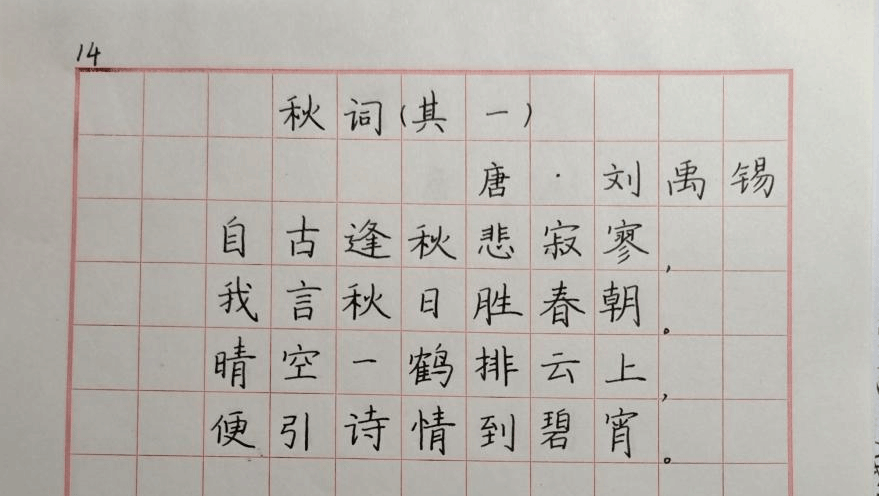 14
秋词(其一)
唐·刘禹锡
自古逢秋悲寂寥,
我言秋日胜春朝。
晴空一鹤排云上,
便引诗情到碧宵。